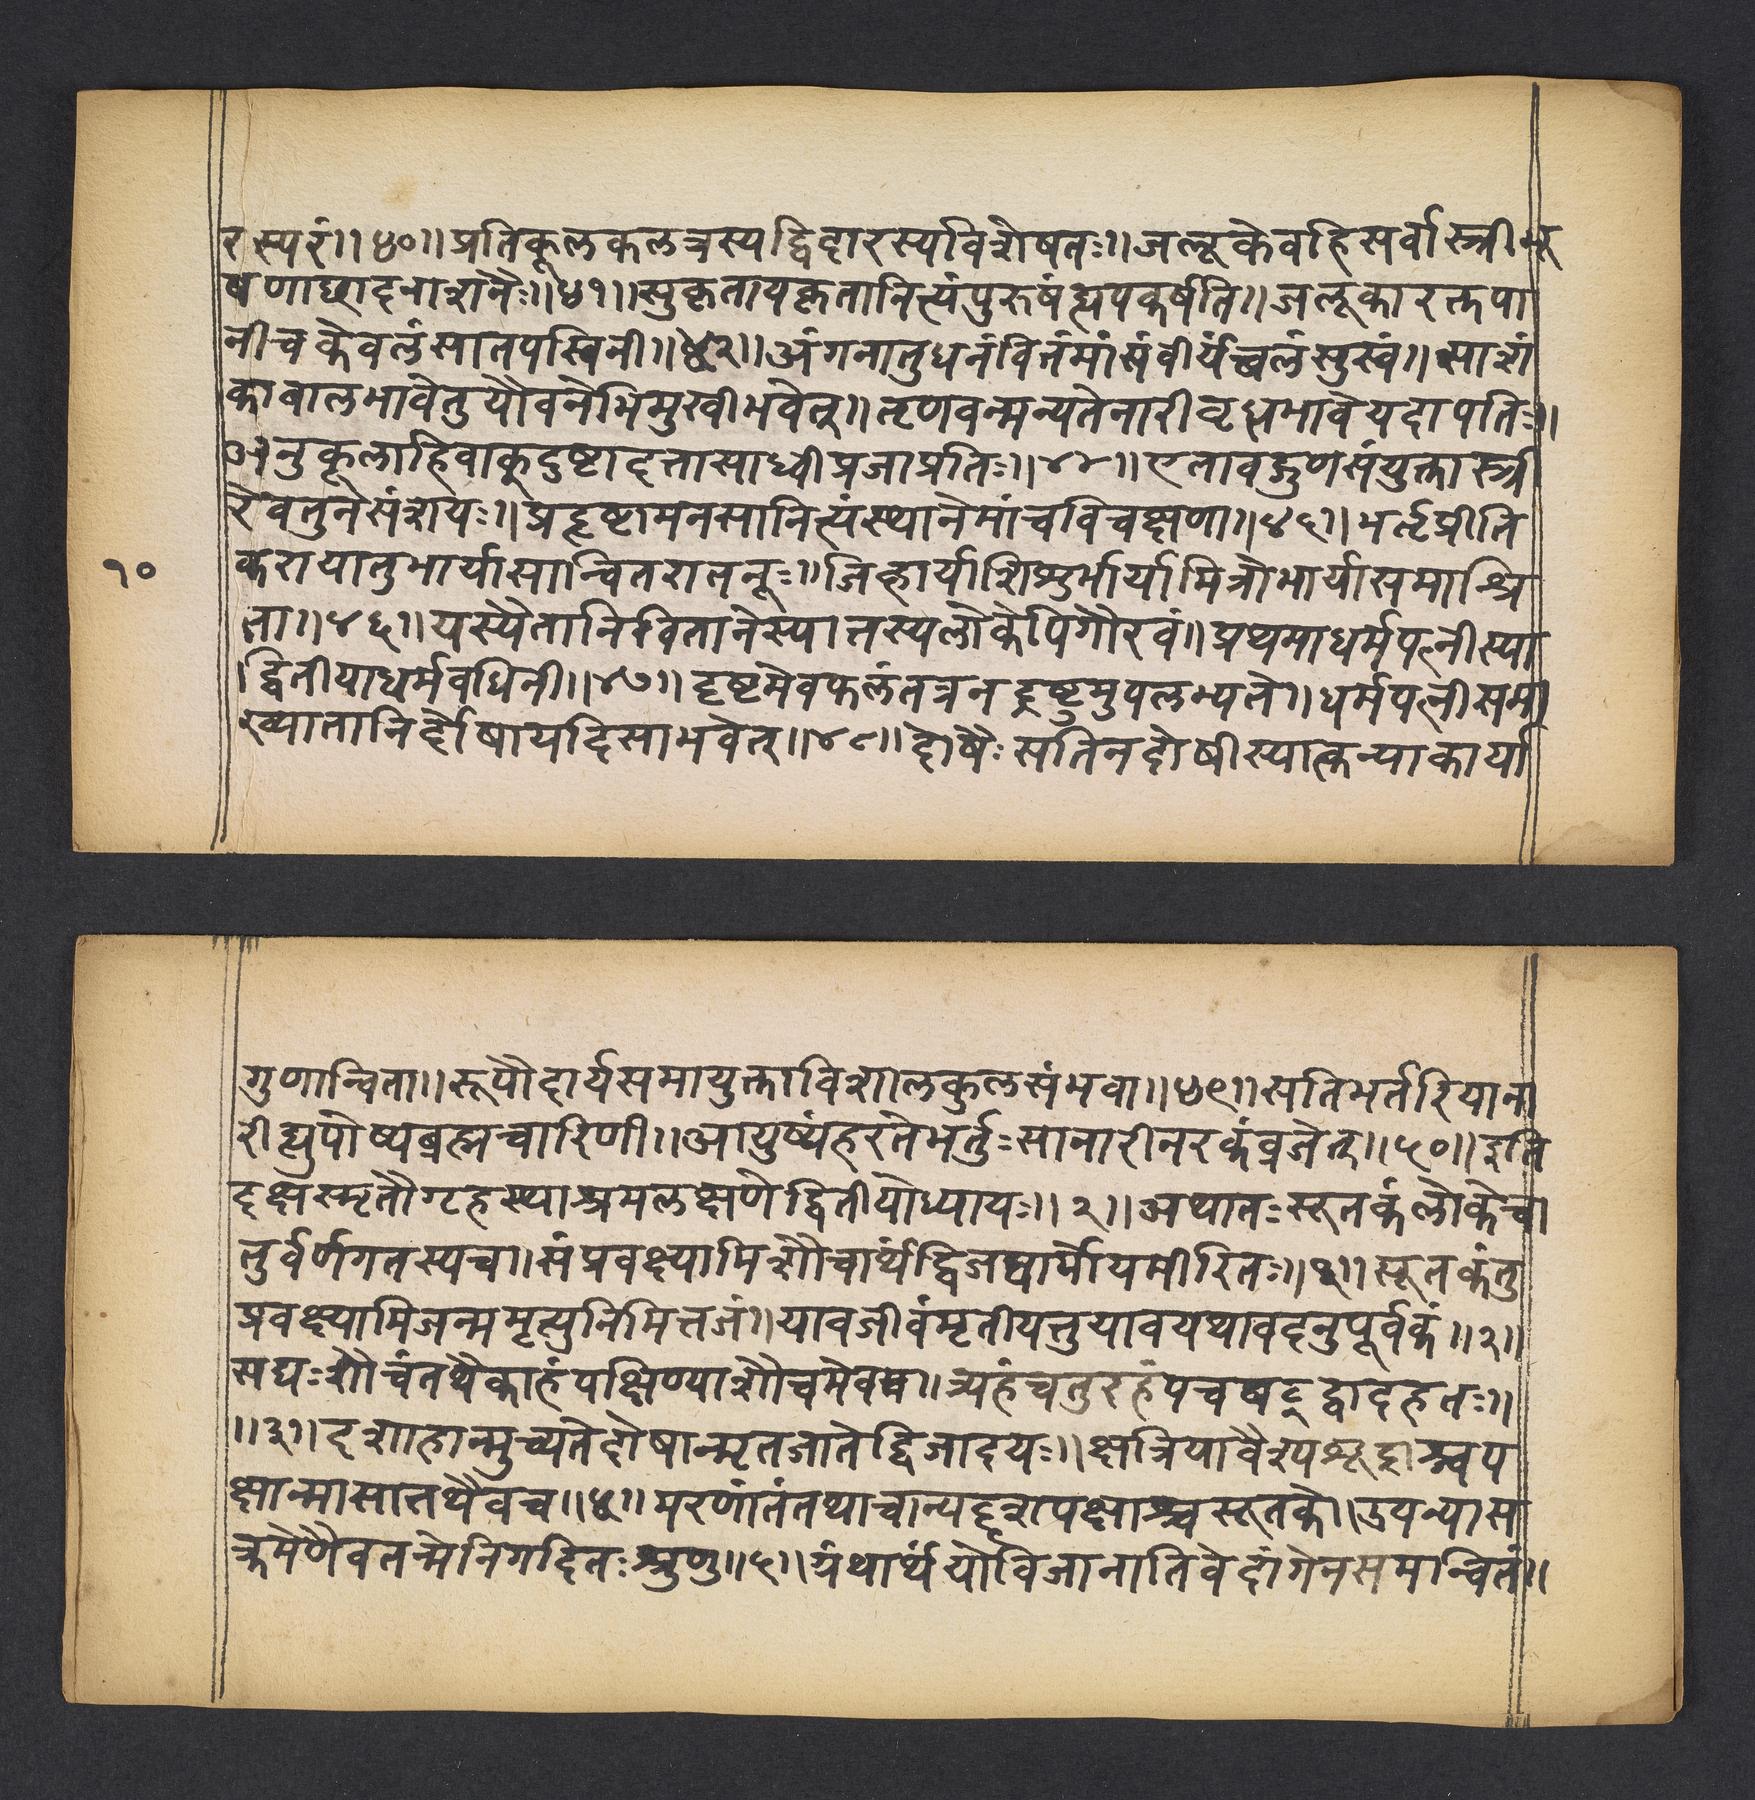 रस्परं॥४०॥प्रतिकूलकलत्रस्यद्विदारस्यविशेषतः॥जलूकेवहिसर्वास्त्रीभू
षणाछादनाशनैः॥४१॥सुकृतापकृतानित्यंपुरुषंह्यपकर्षति॥जलूकारक्तपा
नीचकेवलंसातपस्विनी॥४२॥अंगनातुधनंवित्तंमांसंवीर्यंबलंसुखं॥साशं
काबालभावेतुयौवनेभिमुखीभवेत्॥तृणवन्मन्यतेनारीवृद्धभावेयदापतिः॥
अनुकूलाहिवाक्दुष्टादत्तासाध्वीप्रजाप्रतिः॥४४॥एतावद्गुणसंयुक्तास्त्र्री
रेवतुनसंशयः॥प्रहृष्टामनसानित्यंस्थानेमांचविचक्षणा॥४५॥भर्तृप्रीति
१०
करायातुभार्यासान्वितरातनूः॥जिह्वार्याशिशुर्भार्यामित्रोभार्यासमाश्रि
ता॥४६॥यस्यैतानिवितानेस्यात्तस्यलोकेपिगौरवं॥प्रथमाधर्मपत्नीस्या
द्वितीयाधर्मवर्धिनी॥४७॥दृष्टमेवफलंतत्रनदृष्टमुपलभ्यते॥धर्मपत्नीसमा
ख्यातानिर्दोषायदिसाभवेत्॥४८॥दोषैःसतिनदोषीस्यात्कन्याकार्या
गुणान्विता॥रूपौदार्यसमायुक्ताविशालकुलसंभवा॥४९॥सतिभर्तरियाना
रीह्युपोष्यब्रह्मचारिणी॥आयुष्यंहरतेभर्तुःसानारीनरकंव्रजेत्॥५०॥इति
दक्षस्मृतौगृहस्थाश्रमलक्षणेद्वितीयोध्यायः॥२॥अथातःसूतकंलोकेचा
तुर्वर्णगतस्यच॥संप्रवक्ष्यामिशौचार्थंद्विजम्वार्मोयमीरितः॥१॥सूतकंतु
प्रवक्ष्यामिजन्ममृत्युनिमित्तजं॥यावजीवंमृतीयत्तुयावयथावदनुपूर्वकं॥२॥
सद्यःशौचंतथैकाहंपक्षिण्याशौचमेवच॥त्र्यहंचतुरहंपचषट्द्वादहतः॥
॥३॥दशाहान्मुच्यतेदोषान्मृतजातेद्विजादयः॥क्षत्रियावैश्पशूद्राश्चप
क्षान्मासात्तथैवच॥४॥मरणांतंतथाचान्यद्दशपक्षाश्चसूतके॥उपन्यास
क्रमेणैवतन्मेनिगदितःश्रुणु॥५॥ग्रंथार्थंयोविजानातिवेदांगेनसमन्वितं॥